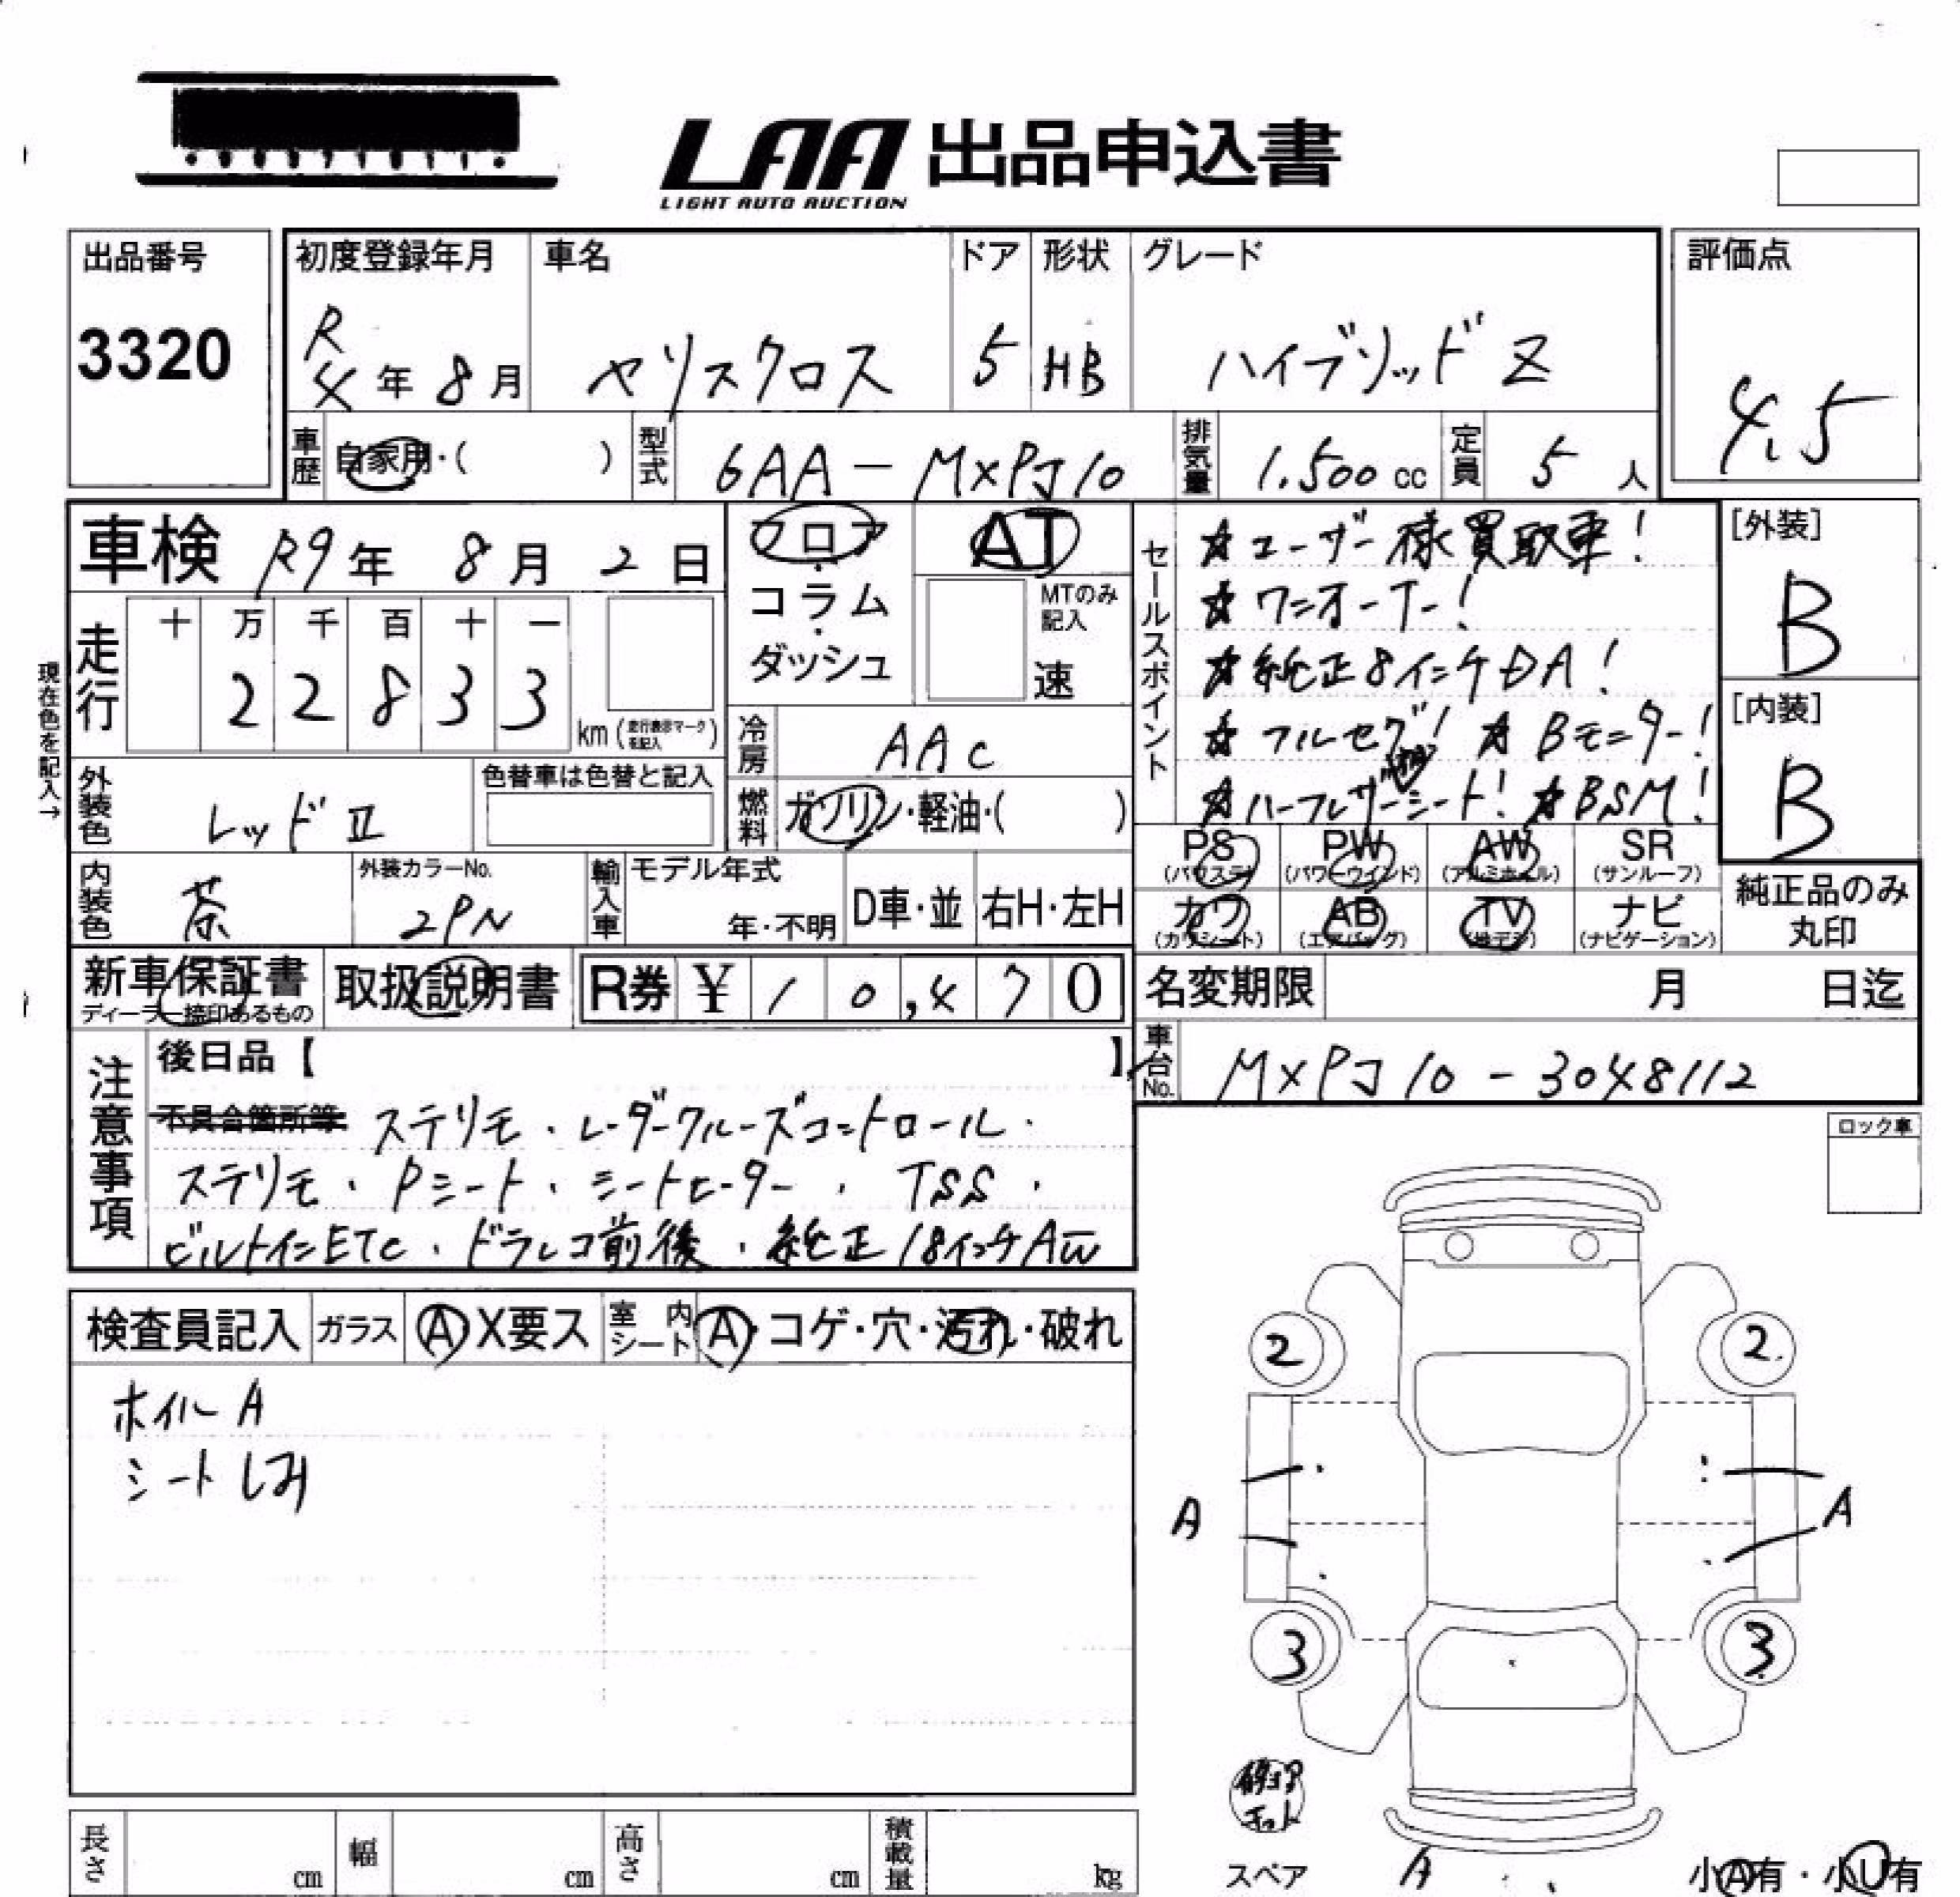 LAA 出品申込書
LIGHT AUTO AUCTION
出品番号
3320
初度登録年月
R
4年 8月
車名
ヤリスクロス
ドア
5
形状
HB
グレード
ハイブリッド Z
評価点
4.5
車歴
自家用・( )
型式
6AA-MXPJ10
排気量
1,500 cc
定員
5 人
車検 R9年 8月 2日
フロア・コラム・ダッシュ
AT
MTのみ記入
速
走行
十 万 千 百 十 一
2 2 8 3 3
km (走行表示マークを記入)
現在色を記入→
冷房
AAC
外装色
レッドⅡ
色替車は色替と記入
燃料
ガソリン・軽油・( )
内装色
茶
外装カラーNo.
2PN
輸入車
モデル年式
年・不明
D車・並
右H・左H
セールスポイント
☆ユーザー様買取車!
☆ワンオーナー!
☆純正8インチDA!
☆フルセグ! ☆Bモニター!
☆ハーフレザーシート! ☆BSM!
[外装]
B
[内装]
B
PS
(パワステ)
PW
(パワーウインド)
AW
(アルミホイル)
SR
(サンルーフ)
カワ
(カワシート)
AB
(エアバッグ)
TV
(地デジ)
ナビ
(ナビゲーション)
純正品のみ
丸印
新車保証書
ディーラー捺印あるもの
取扱説明書
R券 ¥ 1 0,4 7 0
名変期限 月 日迄
車台No.
MXPJ10-3048112
注意事項
後日品【 】
不具合箇所等 ステリモ・レーダークルーズコントロール・
ステリモ・Pシート・シートヒーター・TSS・
ビルトインETC・ドラレコ前後・純正18インチAW
ロック車
検査員記入
ガラス
A X要ス
室内シート
A・コゲ・穴・汚れ・破れ
ホイル A
シートしみ
2 2
A A
3 3
修理キット
スペア
A
小A有・小U有
長さ cm
幅 cm
高さ cm
積載量 kg